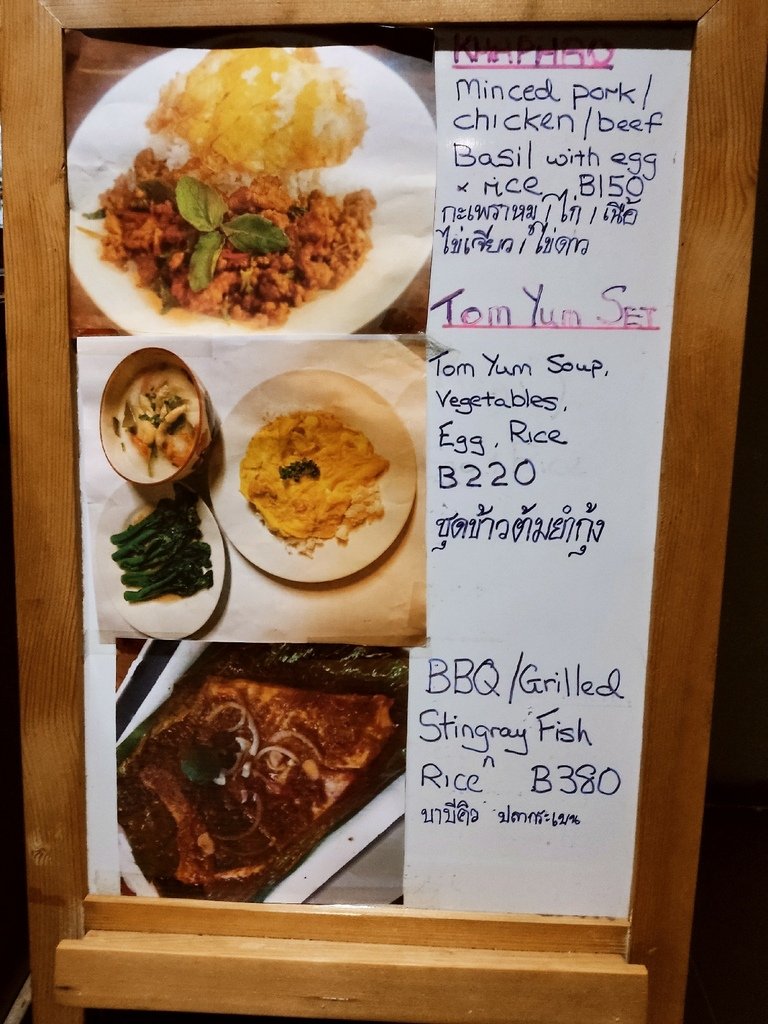 KHAPHAO
Minced pork/
chicken/beef
Basil with egg
x rice B150
กะเพราหมู / ไก่ / เนื้อ
ไข่เจียว / ไข่ดาว
Tom Yum SET
Tom Yum Soup,
Vegetables,
Egg, Rice
B220
ชุดข้าวต้มยำกุ้ง
BBQ/Grilled
Stingray Fish
Rice B380
บาบีคิว ปลากระเบน